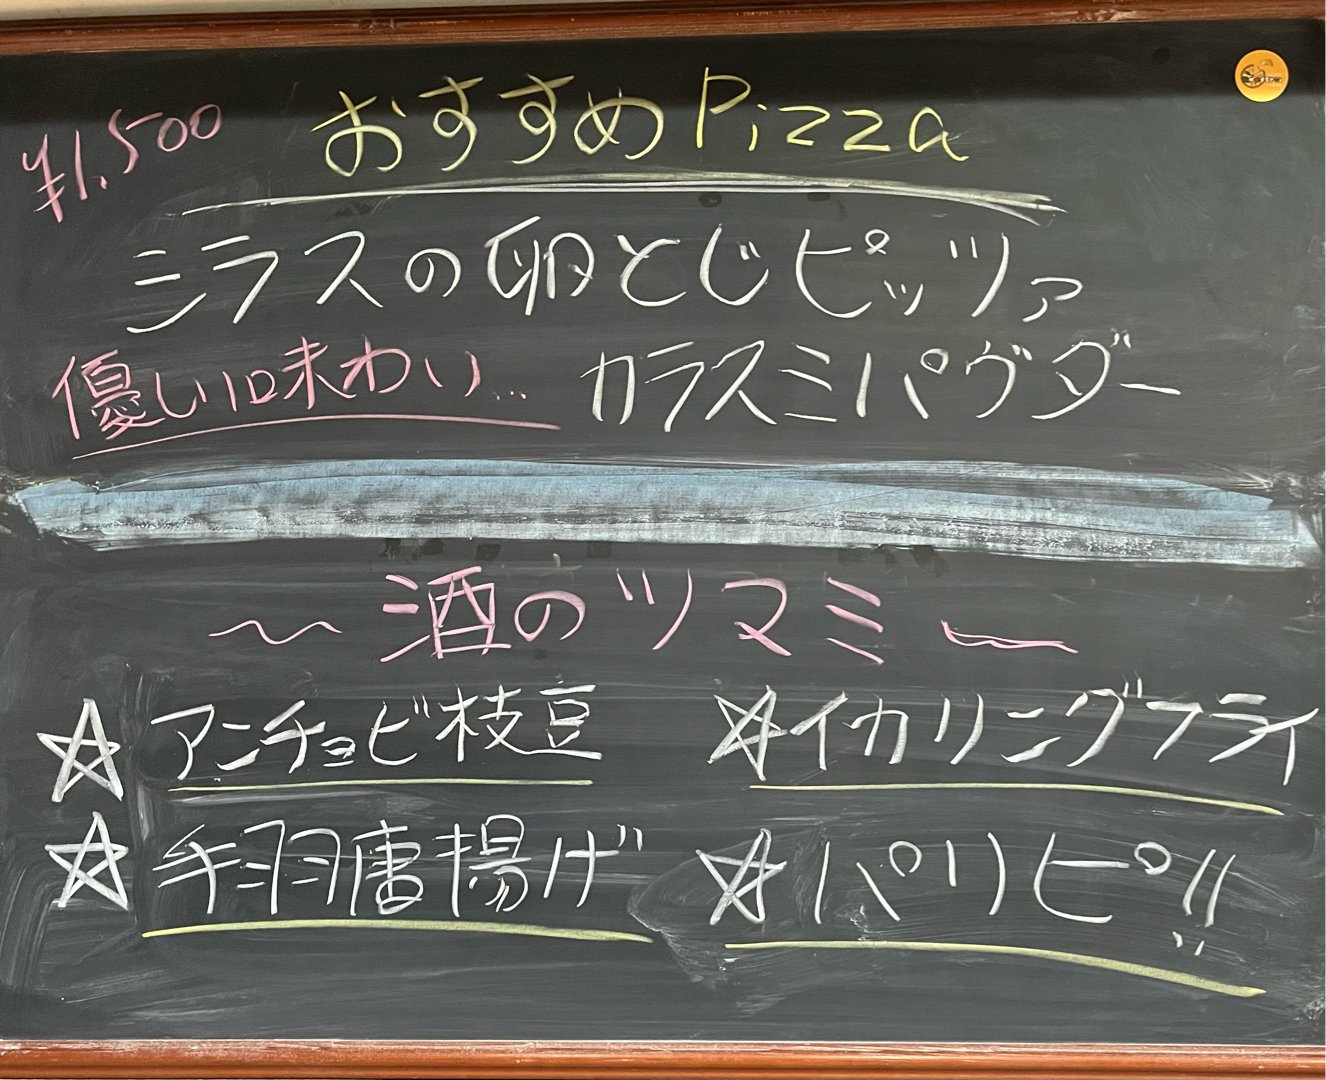 ¥1,500 おすすめPizza
シラスの卵とじピッツァ
優しい味わい… カラスミパヴダー
〜酒のツマミ〜
☆アンチョビ枝豆 ☆イカリングフライ
☆手羽唐揚げ ☆パリピ!!